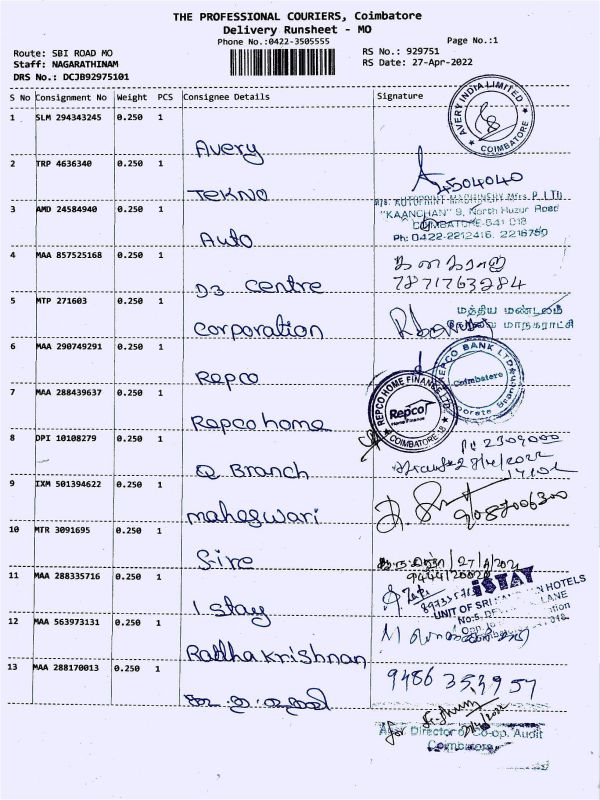 THE PROFESSIONAL COURIERS, Coimbatore
Delivery Runsheet - MO
Phone No.:0422-3505555
Page No.:1
Route: SBI ROAD MO
Staff: NAGARATHINAM
DRS No.: DCJB92975101
RS No.: 929751
RS Date: 27-Apr-2022
S No Consignment No Weight PCS Consignee Details Signature
1 SLM 294343245 0.250 1
Avery
AVERY INDIA LIMITED
COIMBATORE
2 TRP 4636340 0.250 1
TEKNO
4504040
3 AMD 24584940 0.250 1
Auto
M/s. AUTOPRINT MACHINERY Mfrs. P. LTD
"KAANCHAN" 9, North Huzur Road
COIMBATORE-641 018
Ph: 0422-2212416, 2216750
4 MAA 857525168 0.250 1
D3 Centre
கனகராஜ்
7871763284
5 MTP 271603 0.250 1
Corporation
மத்திய மண்டலம்
மாநகராட்சி
6 MAA 290749291 0.250 1
Repco
REPCO BANK LTD
Coimbatore
Corporate Branch
7 MAA 288439637 0.250 1
Repco home
REPCO HOME FINANCE LTD.
Repco
Home Finance
COIMBATORE 18
8 DPI 10108279 0.250 1
Q Branch
PC 2309000
28/4/2022
9 IXM 501394622 0.250 1
maheswari
9087006300
10 MTR 3091695 0.250 1
Fire
11 MAA 288335716 0.250 1
I stay
iSTAY
UNIT OF SRI HOTELS
No:5, LANE
12 MAA 563973131 0.250 1
Radhakrishnan
13 MAA 288170013 0.250 1
9486 353957
for
Director of Co-op. Audit
Coimbatore